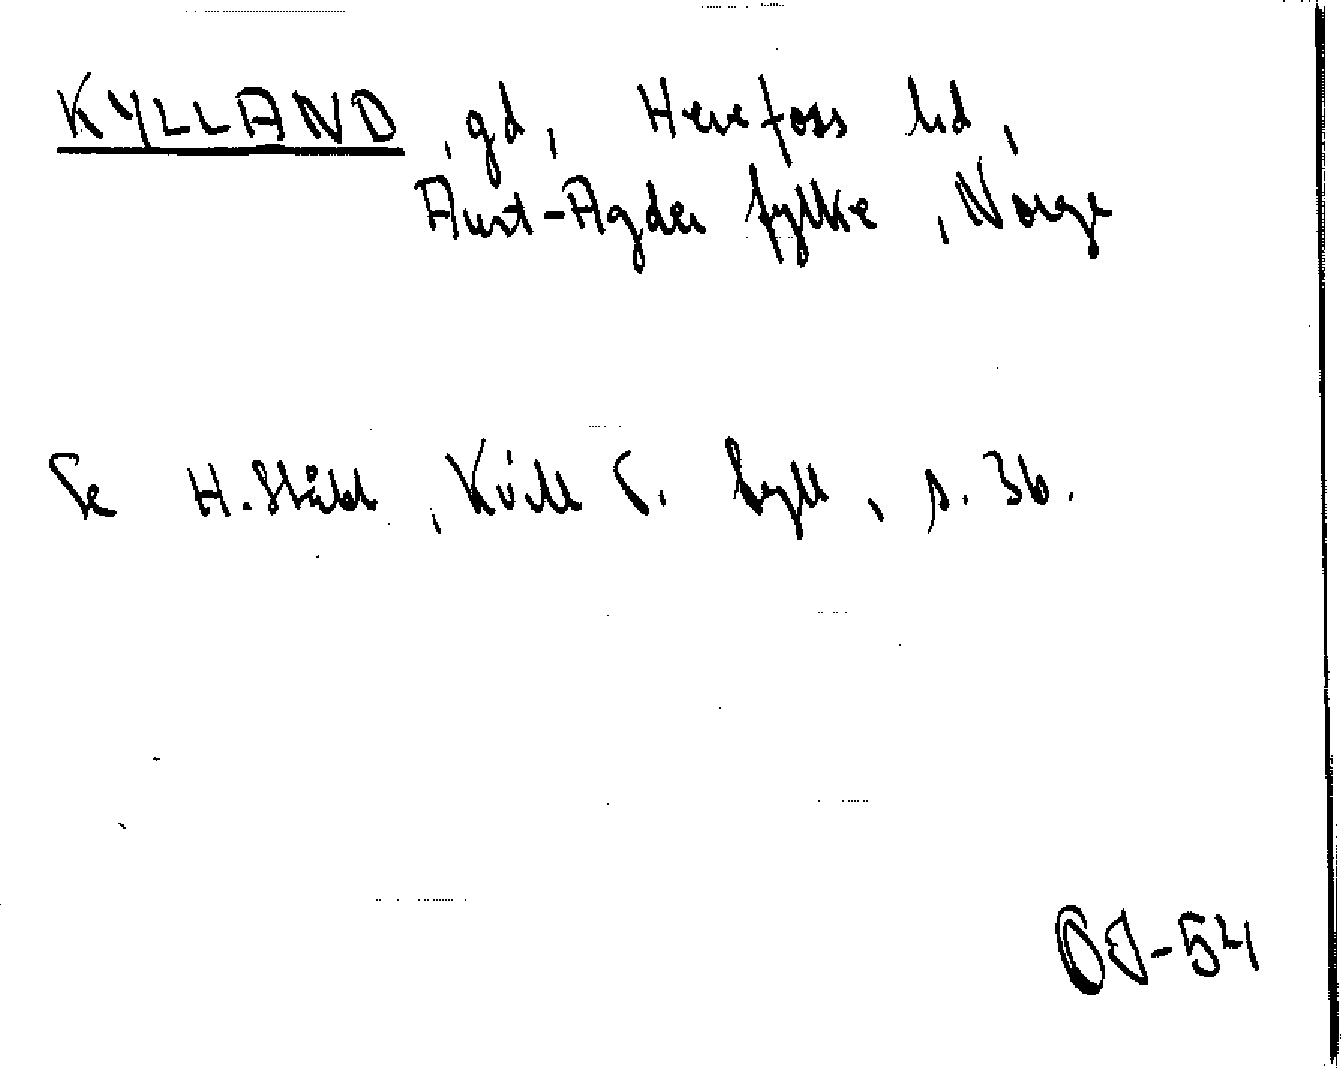 KYLLAND, gd, Herefoss hd,
Aust-Agder fylke, Norge
Se H. Ståhl, Kvill o. Kyll, s. 36.
OJ-54